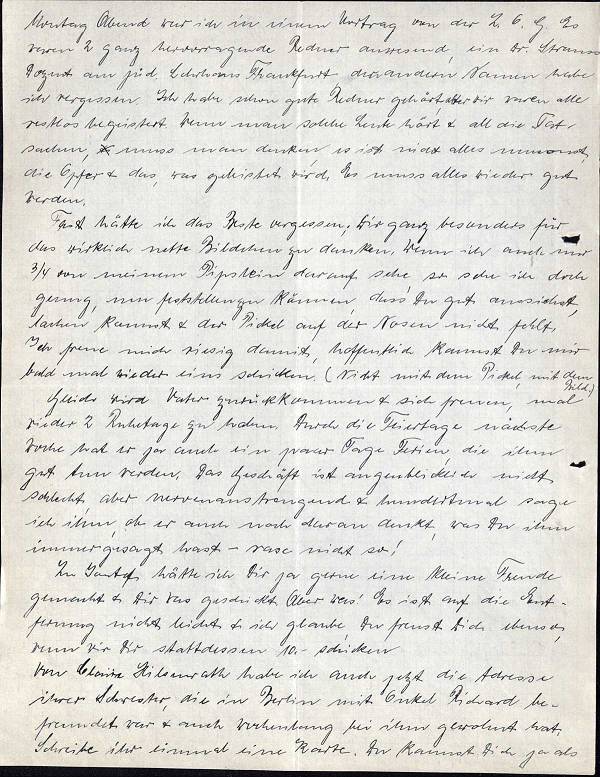 Montag Abend war ich in einem Vortrag von der Z. O. G. Es
waren 2 ganz hervorragende Redner anwesend, ein Dr. Strauss
Dozent am jüd. Lehrhaus Frankfurt des andern Namen habe
ich vergessen. Ich habe schon gute Redner gehört, aber wir waren alle
restlos begeistert. Wenn man solche Leute hört & all die Tat-
sachen, muss man denken es ist nicht alles umsonst,
die Opfer & das, was geleistet wird. Es muss alles wieder gut
werden.
Fast hätte ich das Beste vergessen, Dir ganz besonders für
das wirklich nette Bildchen zu danken. Wenn ich auch nur
3/4 von meinem Pipslein darauf sehe, so sehe ich doch
genug, um feststellen zu können, dass Du gut aussiehst,
lachen kannst & der Pickel auf der Nasen nicht fehlt.
Ich freue mich riesig damit, hoffentlich kannst Du mir
bald mal wieder eins schicken. (Nicht mit dem Pickel, mit dem
Bild.)
Gleich wird Vater zurückkommen & sich freuen, mal
wieder 2 Ruhetage zu haben. Durch die Feiertage nächste
Woche hat er ja auch ein paar Tage Ferien, die ihm
gut tun werden. Das Geschäft ist augenblicklich nicht
schlecht, aber nervenanstrengend & hundertmal sage
ich ihm, ob er auch noch daran denkt, was Du ihm
immer gesagt hast – rase nicht so!
Zu hätte ich Dir ja gerne eine kleine Freude
gemacht & Dir was geschickt. Aber was! Es ist auf die Ent-
fernung nicht leicht & ich glaube Du freust Dich ebenso,
wenn wir Dir stattdessen 10.- schicken
Von Hilsenrath habe ich auch jetzt die Adresse
ihrer Schwester, die in Berlin mit Onkel Richard be-
freundet war & auch wochenlang bei ihm gewohnt hat.
Schreibe ihr einmal eine Karte. Du kannst Dich ja als